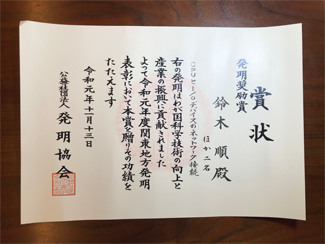 賞状
発明奨励賞
鈴木 順殿
ほか二名
右の発明はわが国科学技術の向上と
産業の振興に寄与されました
よって令和元年度関東地方発明
表彰において本賞を贈りその功績を
たたえます
令和元年十一月十三日
公益社団法人 発明協会